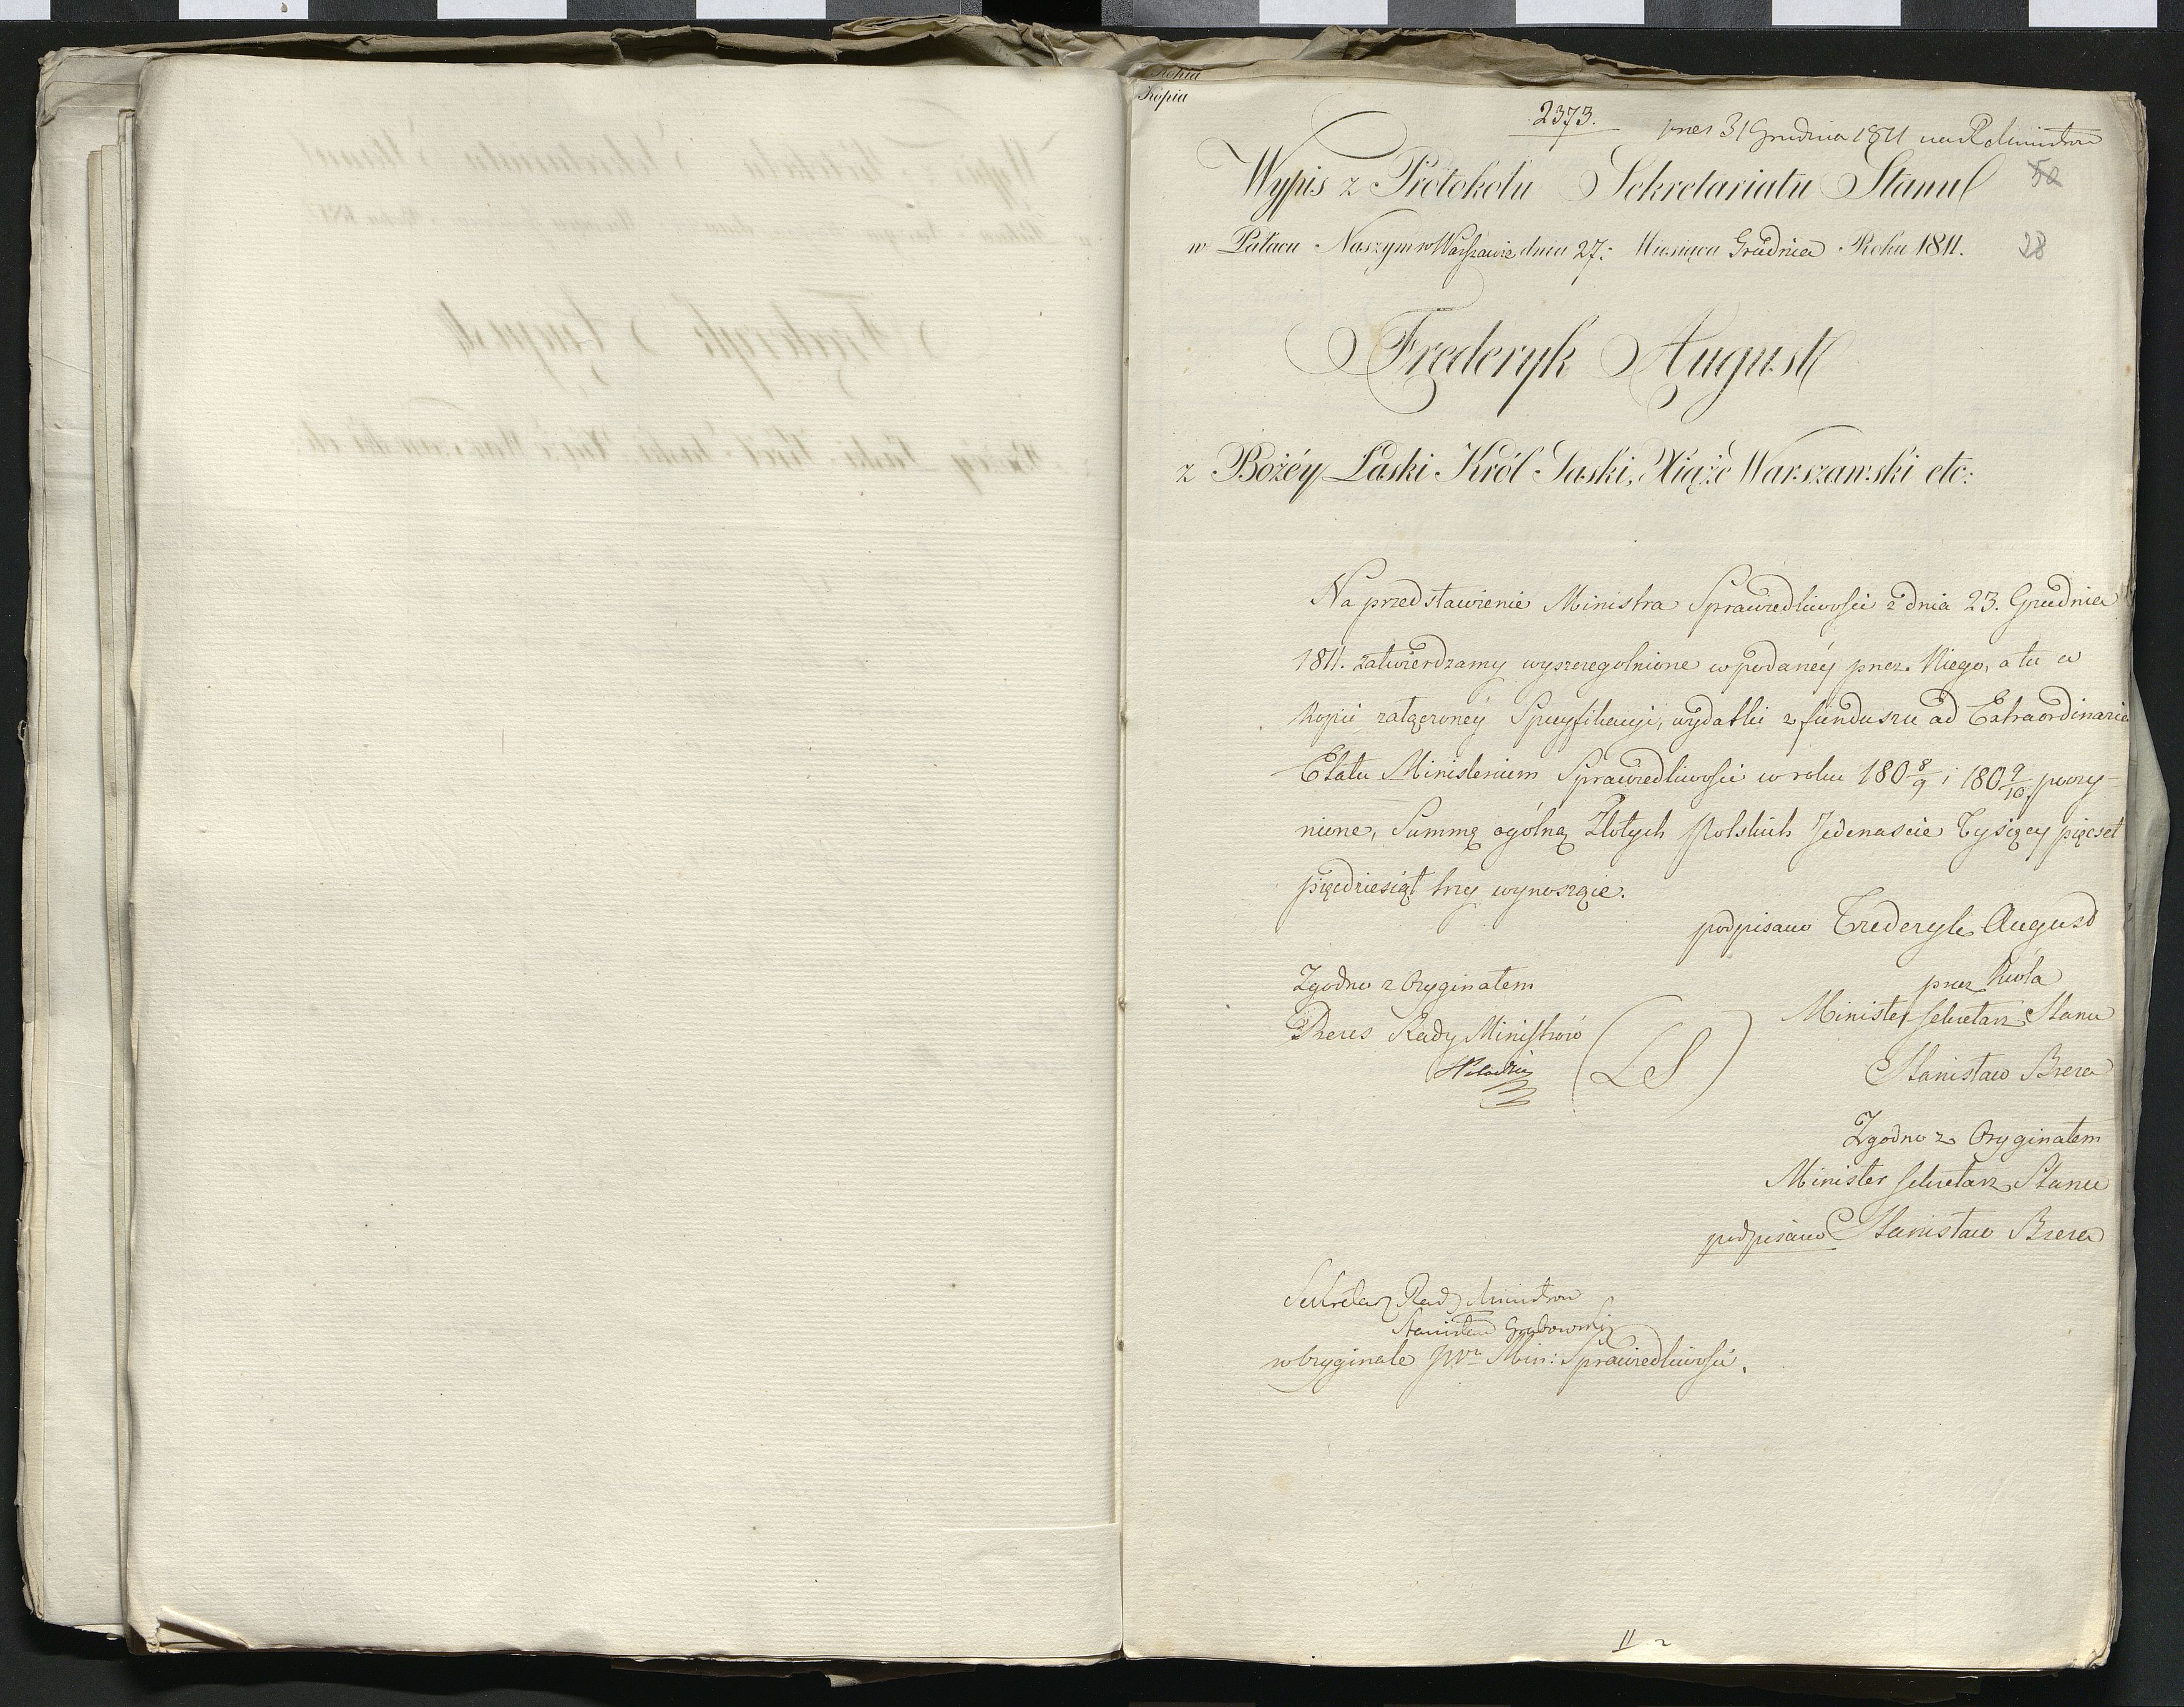 Kopia
Kopia
2373.
pres 31 Grudnia 1811 na R Ministrow
Wypis z Protokołu Sekretariatu Stanu
50
w Pałacu Naszym w Warszawie dnia 27: Miesiąca Grudnia Roku 1811.
28
Frederyk August
z Bożéy Łaski Król Saski, Xiąże Warszawski etc:
Na przedstawienie Ministra Sprawiedliwości z dnia 23. Grudnia
1811. zatwierdzamy wyszczegolnione w podanéy przez Niego, a tu w
Kopii załączonéy Specyfikacyi, wydatki z funduszu ad Extraordinaria
Etatu Ministerium Sprawiedliwości w roku 180 8/9 i 180 9/10 poczy-
nione, Summę ogólną Złotych Polskich Jedenaście Tysięcy pięcset
pięćdziesiąt trzy wynoszące.
podpisano Frederyk August
Zgodno z Oryginałem
przez Króla
Prezes Rady Ministrów
Minister Sekretarz Stanu
(LS)
Stanisław Breza
Zgodno z Oryginałem
Minister Sekretarz Stanu
podpisano Stanisław Breza
Sekretarz Rady Ministrow
Stanisław Grabowski
w Oryginale Min: Sprawiedliwości.